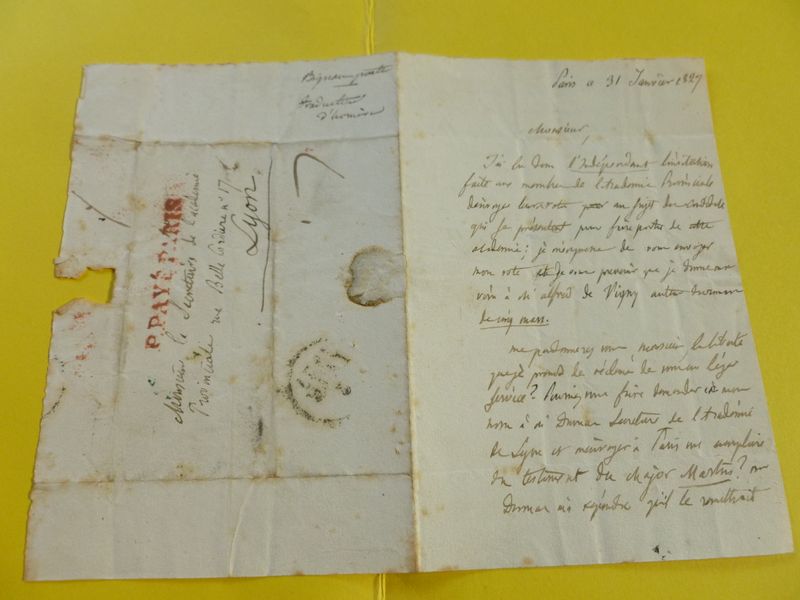 Bignan poete
traducteur
d'homère
P.PAYÉ PARIS
Monsieur le Secretaire de l'académie
Provinciale rue Belle Cordiere n° 17
Lyon
Paris ce 31 Janvier 1827
Monsieur,
J'ai lu dans l'Indépendant l'invitation
faite aux membres de l'académie Provinciale
d'envoyer leur vote au sujet des candidats
qui se présentent pour faire partie de cette
académie; je m'empresse de vous envoyer
mon vote et de vous prevenir que je donne ma
voix à Mr alfred de Vigny auteur du roman
de cinq mars.
me pardonnerez vous monsieur la liberté
que je prends de réclamer de vous un léger
service? Pourriez vous faire demander en mon
nom à Mr Dumas Secretaire de l'académie
de Lyon et m'envoyer à Paris un exemplaire
du testament du Major Martin? Mr
Dumas m'a répondu qu'il le remettrait